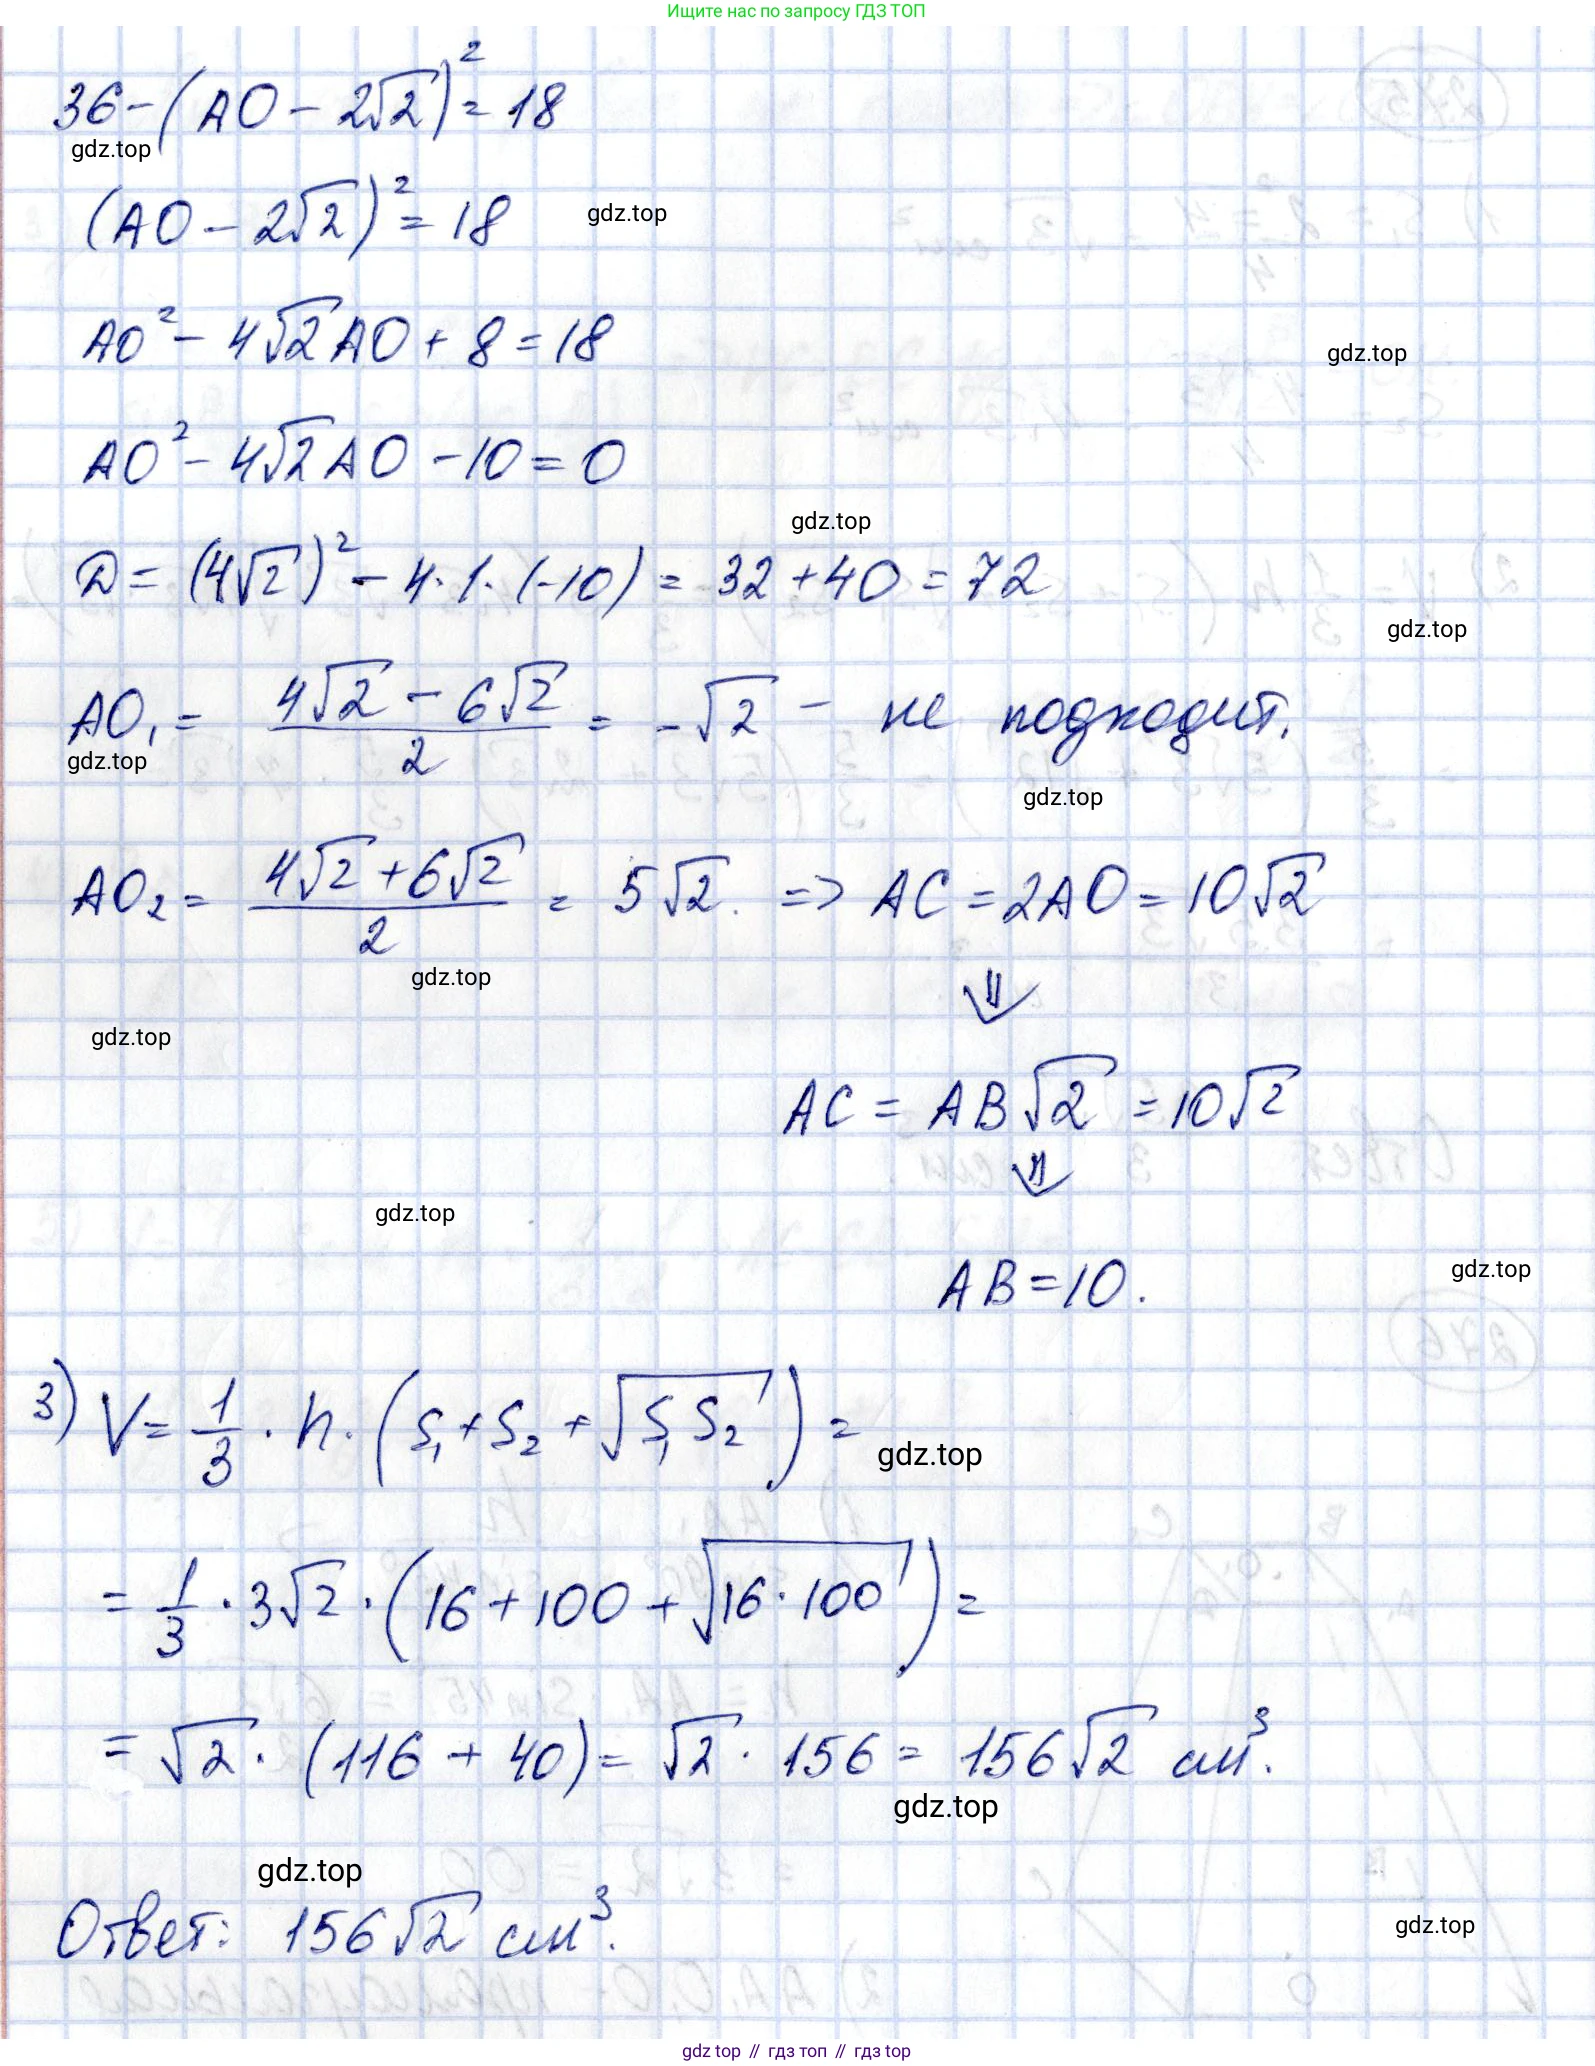 Ищите нас по запросу ГДЗ ТОП
36 - (AO - 2√2)² = 18
gdz.top
(AO - 2√2)² = 18
gdz.top
AO² - 4√2 AO + 8 = 18
gdz.top
AO² - 4√2 AO - 10 = 0
gdz.top
D = (4√2)² - 4·1·(-10) = 32 + 40 = 72
gdz.top
AO₁ = (4√2 - 6√2)/2 = -√2 - не подходит.
gdz.top
gdz.top
AO₂ = (4√2 + 6√2)/2 = 5√2. => AC = 2AO = 10√2
gdz.top
⇓
gdz.top
AC = AB√2 = 10√2
⇓
gdz.top
gdz.top
AB = 10.
3) V = 1/3 · h · (S₁ + S₂ + √(S₁S₂)) =
gdz.top
= 1/3 · 3√2 · (16 + 100 + √(16·100)) =
= √2 · (116 + 40) = √2 · 156 = 156√2 см³.
gdz.top
gdz.top
Ответ: 156√2 см³.
gdz.top
gdz top // гдз топ // gdz top